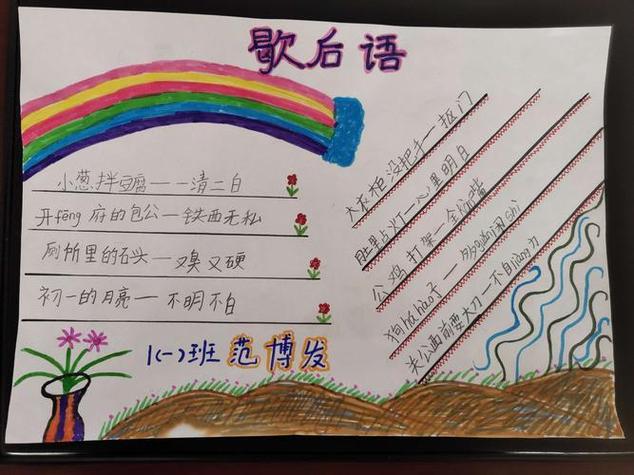 歇后语
小葱拌豆腐——一清二白
开fēng府的包公—铁面无私
厕所里的石头—又臭又硬
初一的月亮—不明不白
1(一)班 范博发
大衣柜没把手—抠门
肚里点灯—心里明白
公鸡打架—全仗嘴
狗拔hào子—多guǎn闲shì
关公面前耍大刀—不自liàng力